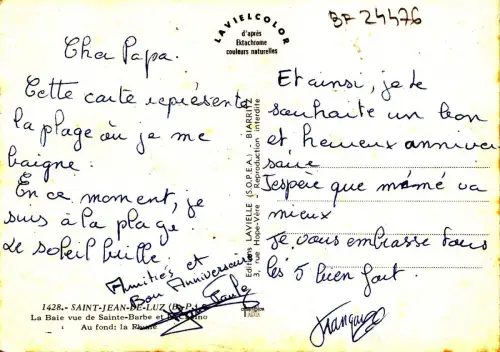 LAVIELCOLOR
d'après
Ektachrome
couleurs naturelles
BF 24476
Cher Papa.
Cette carte représente
la plage où je me
baigne.
En ce moment, je
suis à la plage.
Le soleil brille.
Amitiés et
Bon Anniversaire
Paule
1428.- SAINT-JEAN-DE-LUZ (B.-P.)
La Baie vue de Sainte-Barbe et
Au fond: la Rhune
Editions LAVIELLE (S.O.P.E.A.) - BIARRITZ
3, rue Hope-Vère - Reproduction interdite
Et ainsi, je te
souhaite un bon
et heureux anniver
saire
J'espère que mémé va
mieux
Je vous embrasse tous
les 5 bien fort.